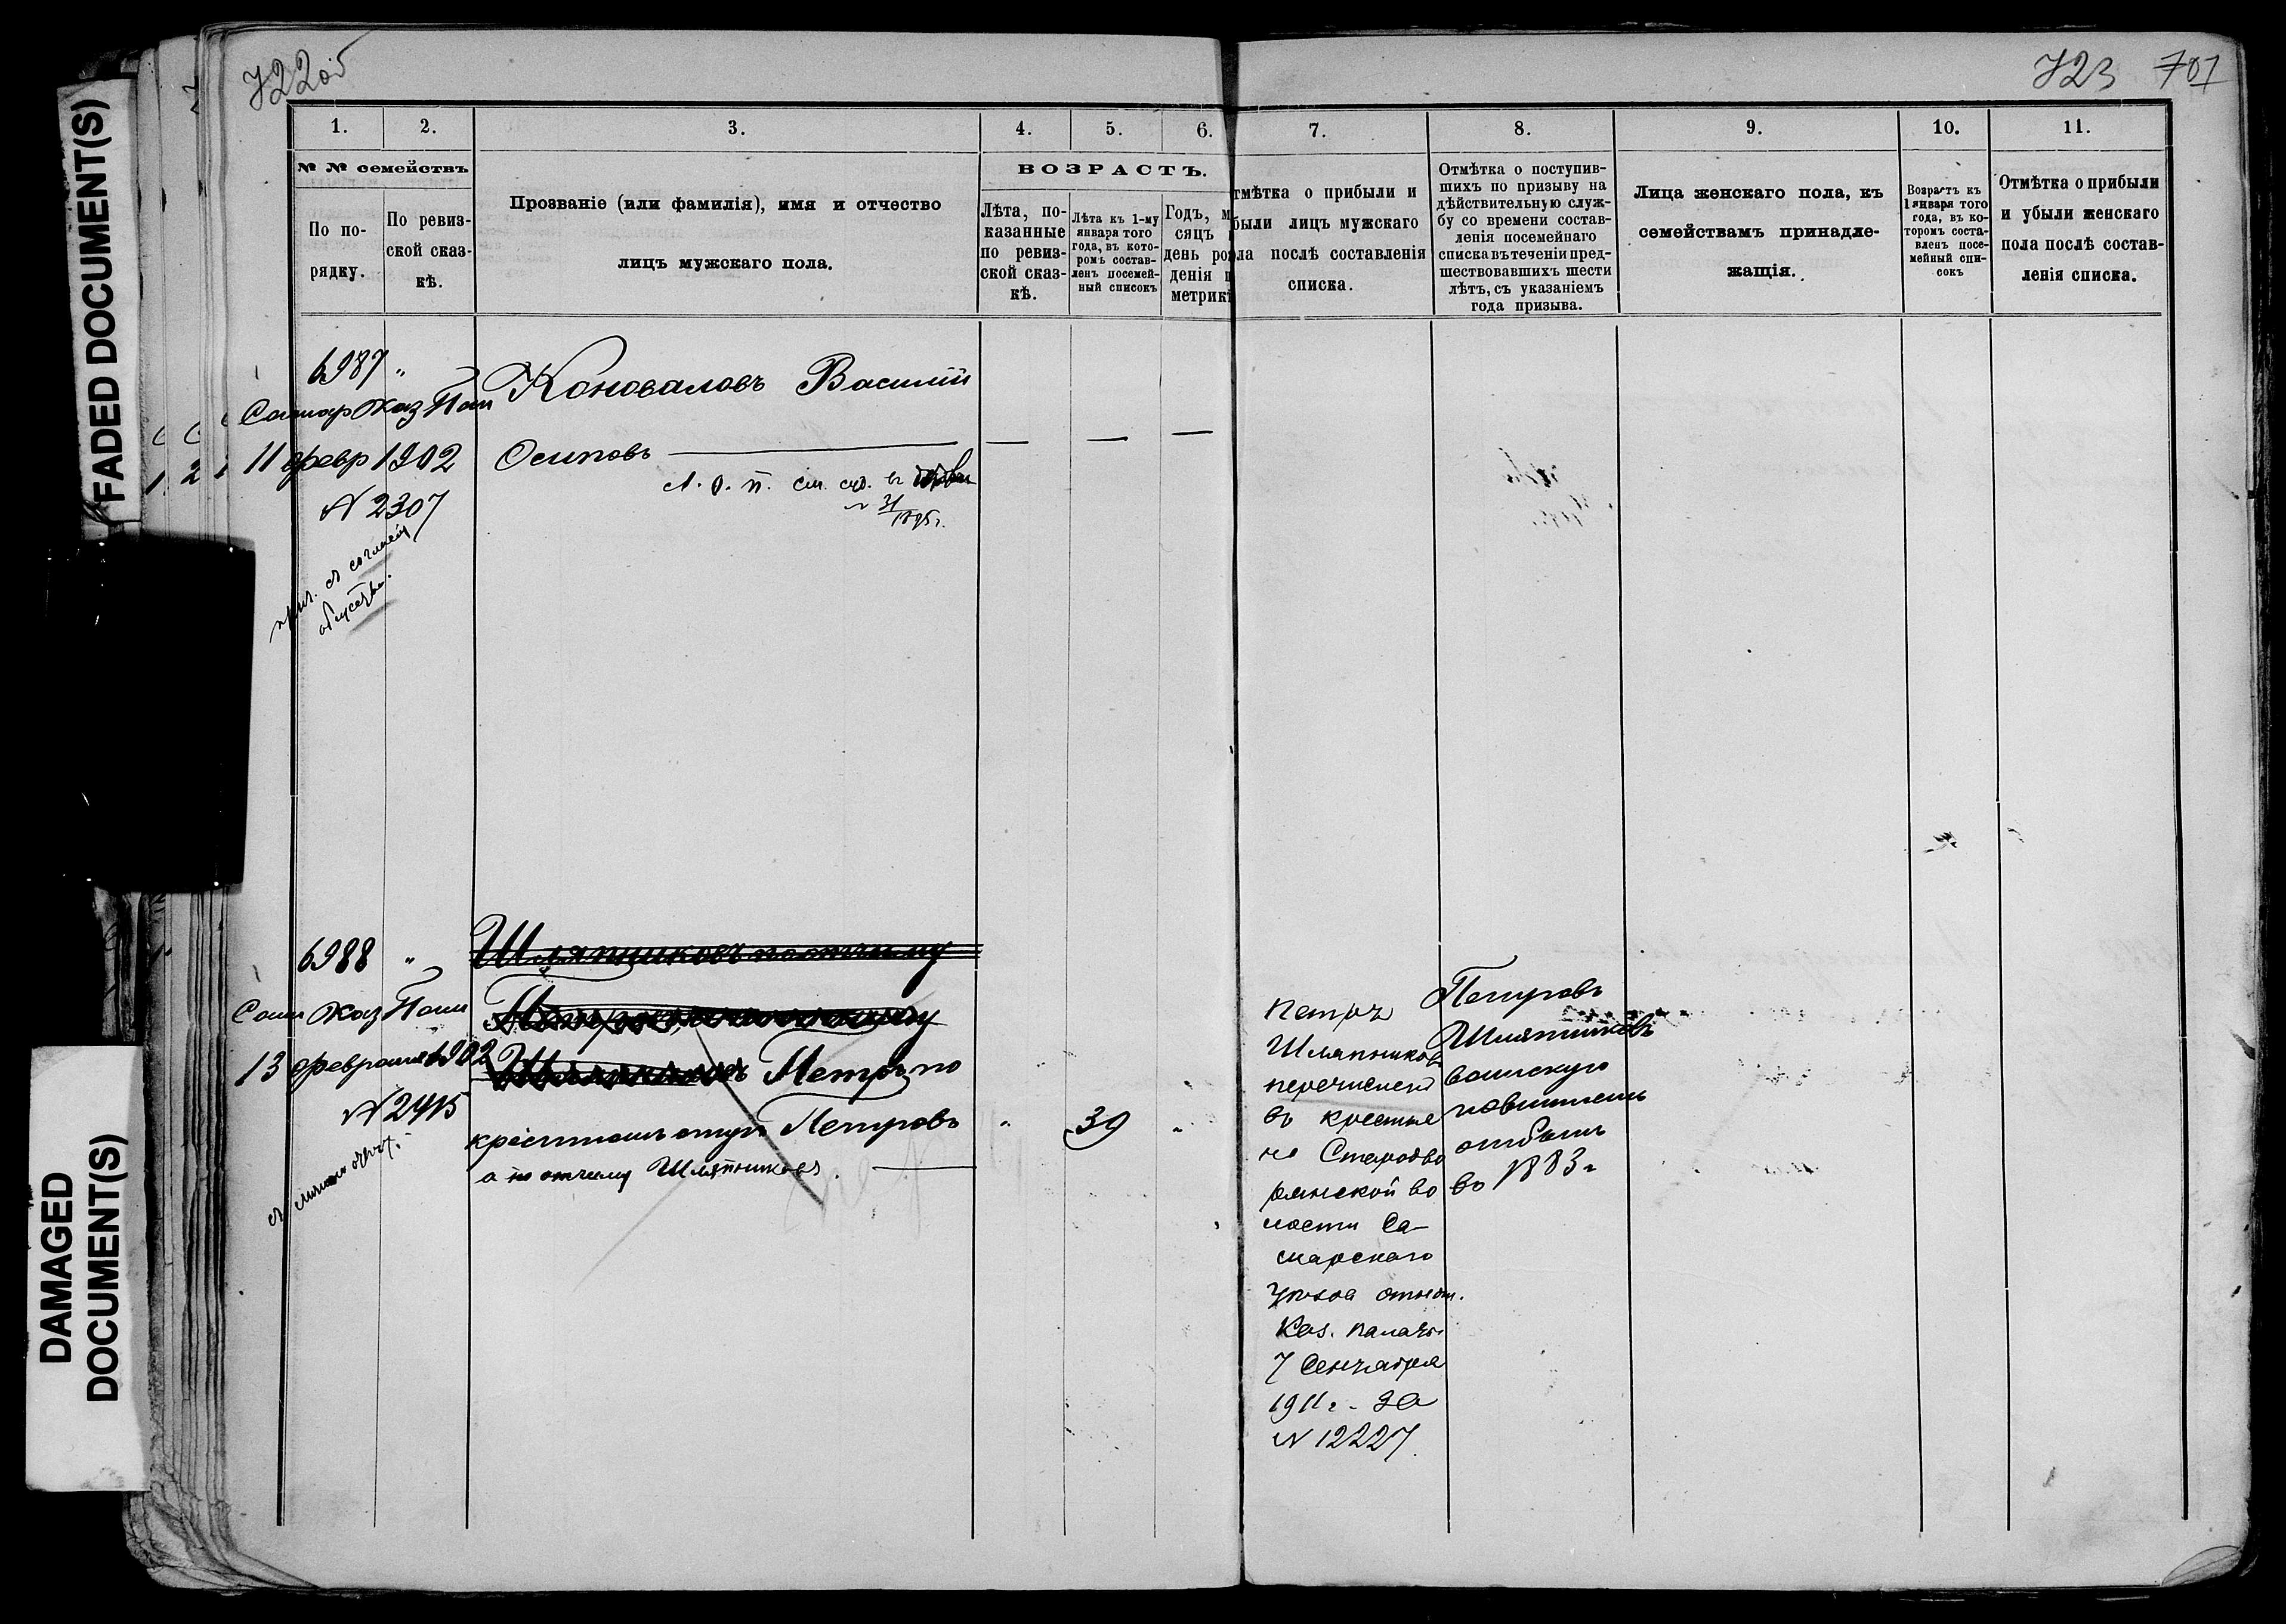 722 об
723 701
FADED DOCUMENT(S)
DAMAGED
DOCUMENT(S)
1. 2. 3. 4. 5. 6. 7. 8. 9. 10. 11.
№ № семействъ
По по-
рядку.
По ревиз-
ской сказ-
кѣ.
Прозваніе (или фамилія), имя и отчество
лицъ мужскаго пола.
ВОЗРАСТЪ.
Лѣта, по-
казанные
по ревиз-
ской сказ-
кѣ.
Лѣта къ 1-му
января того
года, въ кото-
ромъ состав-
ленъ посемей-
ный списокъ
Годъ, м
сяцъ
день ро
денія п
метрикѣ
тмѣтка о прибыли и
были лицъ мужскаго
ола послѣ составленія
списка.
Отмѣтка о поступив-
шихъ по призыву на
дѣйствительную служ-
бу со времени состав-
ленія посемейнаго
списка въ теченіи пред-
шествовавшихъ шести
лѣтъ, съ указаніемъ
года призыва.
Лица женскаго пола, къ
семействамъ принадле-
жащія.
Возрастъ къ
1 января того
года, въ ко-
торомъ соста-
вленъ посе-
мейный спи-
сокъ
Отмѣтка о прибыли
и убыли женскаго
пола послѣ состав-
ленія списка.
6987 "
Самар Каз Пал
11 февр 1902
N 2307
прич. съ согласія
общества.
Коноваловъ Василій
Осиповъ
см.
31
1895 г.
6988 "
Сам Каз Пал
13 февраля 1902
N 2415
Шляпниковъ по отчиму
Шляпниковъ Петръ по
крестному отцу Петровъ
а по отчему Шляпниковъ.
" 39 "
Петръ
Шляпниковъ
перечисленъ
въ крестьяне
Старобо
рянской во
лости Са-
марскаго
уѣзда отнош.
Каз. палаты
7 Сентября
1911 г. за
N 12227.
Петровъ
Шляпниковъ
воинскую
повинность
отбылъ
въ 1883 г